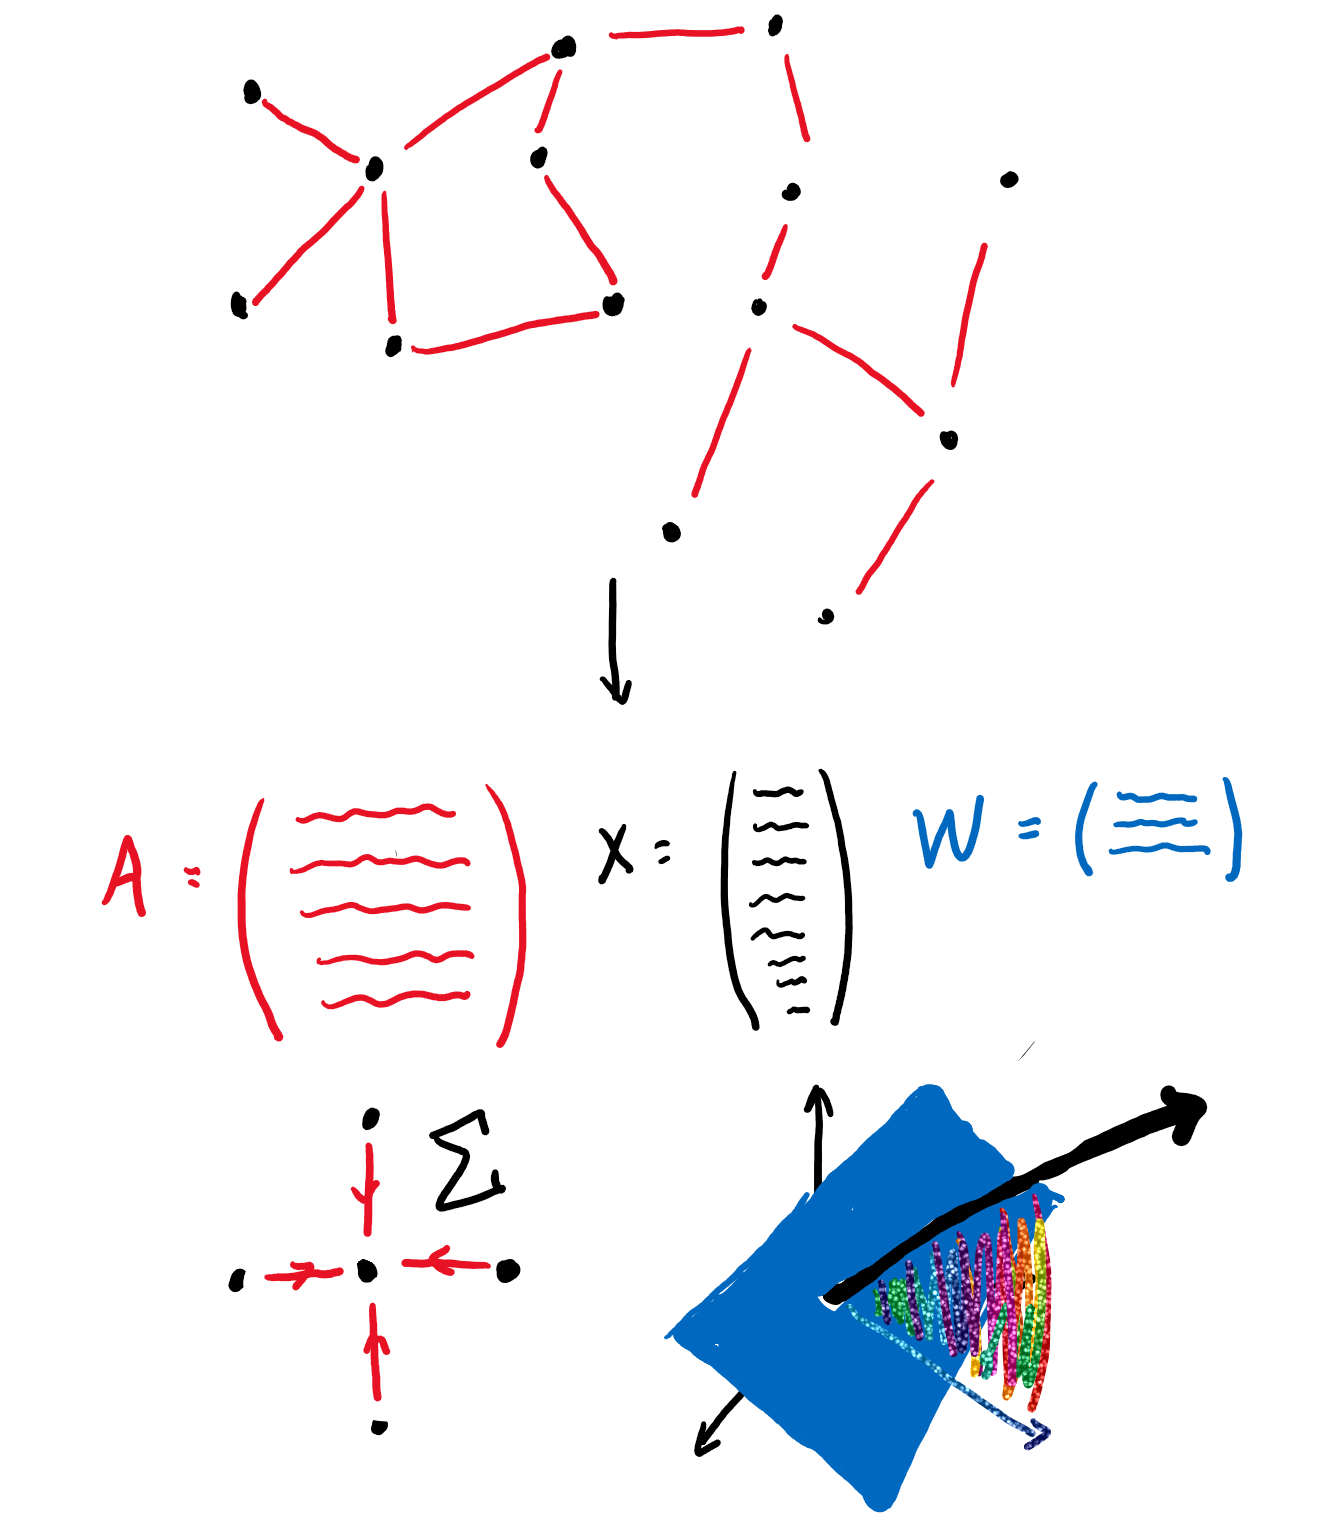 A = ( ) X = ( ) W = ( )
Σ